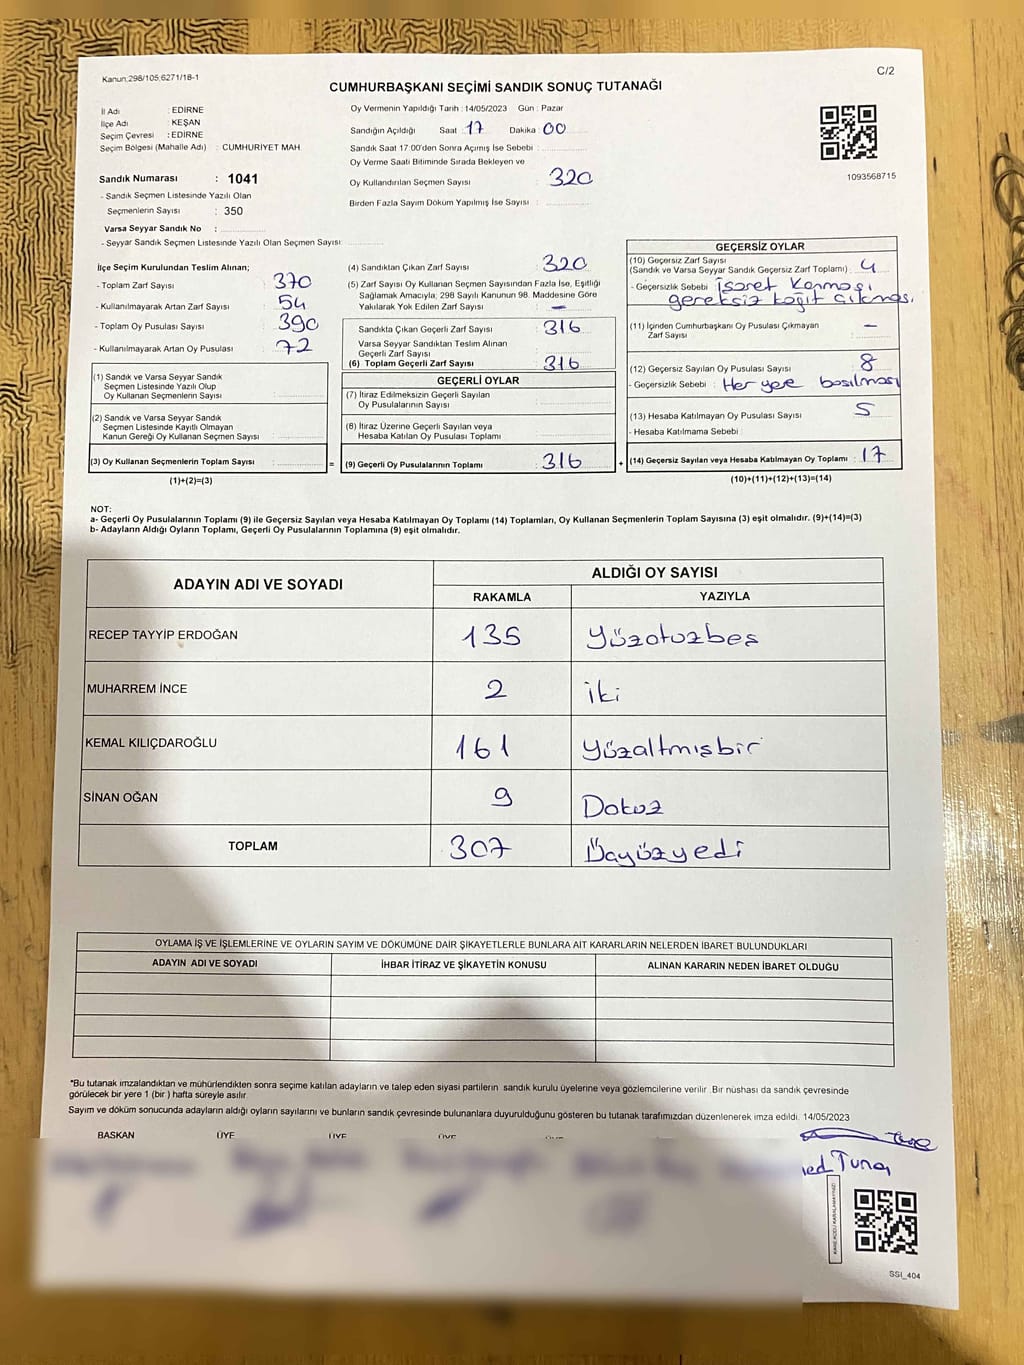 Kanun;298/105,6271/18-1
C/2
CUMHURBAŞKANI SEÇİMİ SANDIK SONUÇ TUTANAĞI
İl Adı : EDİRNE
İlçe Adı : KEŞAN
Seçim Çevresi : EDİRNE
Seçim Bölgesi (Mahalle Adı) : CUMHURİYET MAH
Sandık Numarası : 1041
- Sandık Seçmen Listesinde Yazılı Olan
Seçmenlerin Sayısı : 350
Varsa Seyyar Sandık No :
- Seyyar Sandık Seçmen Listesinde Yazılı Olan Seçmen Sayısı:
Oy Vermenin Yapıldığı Tarih : 14/05/2023 Gün : Pazar
Sandığın Açıldığı Saat 17 Dakika 00
Sandık Saat 17:00'den Sonra Açılmış İse Sebebi :
Oy Verme Saati Bitiminde Sırada Bekleyen ve
Oy Kullandırılan Seçmen Sayısı : 320
Birden Fazla Sayım Döküm Yapılmış İse Sayısı :
1093568715
İlçe Seçim Kurulundan Teslim Alınan;
- Toplam Zarf Sayısı : 370
- Kullanılmayarak Artan Zarf Sayısı : 54
- Toplam Oy Pusulası Sayısı : 390
- Kullanılmayarak Artan Oy Pusulası : 72
(1) Sandık ve Varsa Seyyar Sandık
Seçmen Listesinde Yazılı Olup
Oy Kullanan Seçmenlerin Sayısı :
(2) Sandık ve Varsa Seyyar Sandık
Seçmen Listesinde Kayıtlı Olmayan
Kanun Gereği Oy Kullanan Seçmen Sayısı :
(3) Oy Kullanan Seçmenlerin Toplam Sayısı : =
(1)+(2)=(3)
(4) Sandıktan Çıkan Zarf Sayısı : 320
(5) Zarf Sayısı Oy Kullanan Seçmen Sayısından Fazla İse, Eşitliği
Sağlamak Amacıyla; 298 Sayılı Kanunun 98. Maddesine Göre
Yakılarak Yok Edilen Zarf Sayısı : —
Sandıkta Çıkan Geçerli Zarf Sayısı : 316
Varsa Seyyar Sandıktan Teslim Alınan
Geçerli Zarf Sayısı :
(6) Toplam Geçerli Zarf Sayısı : 316
GEÇERLİ OYLAR
(7) İtiraz Edilmeksizin Geçerli Sayılan
Oy Pusulalarının Sayısı :
(8) İtiraz Üzerine Geçerli Sayılan veya
Hesaba Katılan Oy Pusulası Toplamı :
(9) Geçerli Oy Pusulalarının Toplamı : 316 +
GEÇERSİZ OYLAR
(10) Geçersiz Zarf Sayısı
(Sandık ve Varsa Seyyar Sandık Geçersiz Zarf Toplamı) : 4
- Geçersizlik Sebebi : İşaret Konması
gereksiz kağıt çıkması.
(11) İçinden Cumhurbaşkanı Oy Pusulası Çıkmayan
Zarf Sayısı : —
(12) Geçersiz Sayılan Oy Pusulası Sayısı : 8
- Geçersizlik Sebebi : Her yere basılması
(13) Hesaba Katılmayan Oy Pusulası Sayısı : 5
- Hesaba Katılmama Sebebi :
(14) Geçersiz Sayılan veya Hesaba Katılmayan Oy Toplamı : 17
(10)+(11)+(12)+(13)=(14)
NOT:
a- Geçerli Oy Pusulalarının Toplamı (9) ile Geçersiz Sayılan veya Hesaba Katılmayan Oy Toplamı (14) Toplamları, Oy Kullanan Seçmenlerin Toplam Sayısına (3) eşit olmalıdır. (9)+(14)=(3)
b- Adayların Aldığı Oyların Toplamı, Geçerli Oy Pusulalarının Toplamına (9) eşit olmalıdır.
ADAYIN ADI VE SOYADI
ALDIĞI OY SAYISI
RAKAMLA YAZIYLA
RECEP TAYYİP ERDOĞAN 135 Yüzotuzbeş
MUHARREM İNCE 2 iki
KEMAL KILIÇDAROĞLU 161 Yüzaltmışbir
SİNAN OĞAN 9 Dokuz
TOPLAM 307 Üçyüzyedi
OYLAMA İŞ VE İŞLEMLERİNE VE OYLARIN SAYIM VE DÖKÜMÜNE DAİR ŞİKAYETLERLE BUNLARA AİT KARARLARIN NELERDEN İBARET BULUNDUKLARI
ADAYIN ADI VE SOYADI İHBAR İTİRAZ VE ŞİKAYETİN KONUSU ALINAN KARARIN NEDEN İBARET OLDUĞU
*Bu tutanak imzalandıktan ve mühürlendikten sonra seçime katılan adayların ve talep eden siyasi partilerin sandık kurulu üyelerine veya gözlemcilerine verilir. Bir nüshası da sandık çevresinde
görülecek bir yere 1 (bir ) hafta süreyle asılır.
Sayım ve döküm sonucunda adayların aldığı oyların sayılarını ve bunların sandık çevresinde bulunanlara duyurulduğunu gösteren bu tutanak tarafımızdan düzenlenerek imza edildi. 14/05/2023
BAŞKAN ÜYE ÜYE ÜYE
Tuna
SSI_404